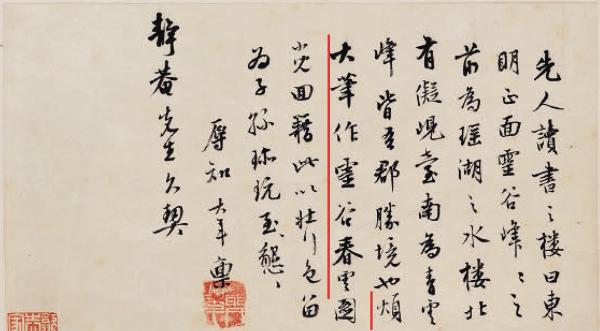 先人讀書之樓曰東
明正面靈谷峰〻之
前為瑶湖之水樓北
有儗峴臺南為青雲
峰皆吾郡勝境也煩
大筆作靈谷春雲圖
小兒回藉此以壯行色留
為子孫珎玩至懇〻
辱知大年稟
靜菴先生久契